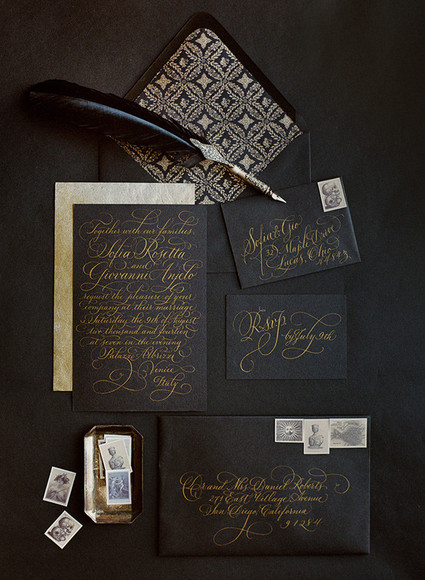 Together with our families
Sofia Rosetta
and
Giovanni Anjelo
request the pleasure of your
company at their marriage
Saturday the 9th of August
two thousand and fourteen
at seven in the evening
Palazzo Abrizzi
Venice
Italy
Sofia & Gio
Maple Drive
Rsvp
by July 9th
Mr and Mrs Daniel Roberts
271 East Village Avenue
San Diego, California
91284